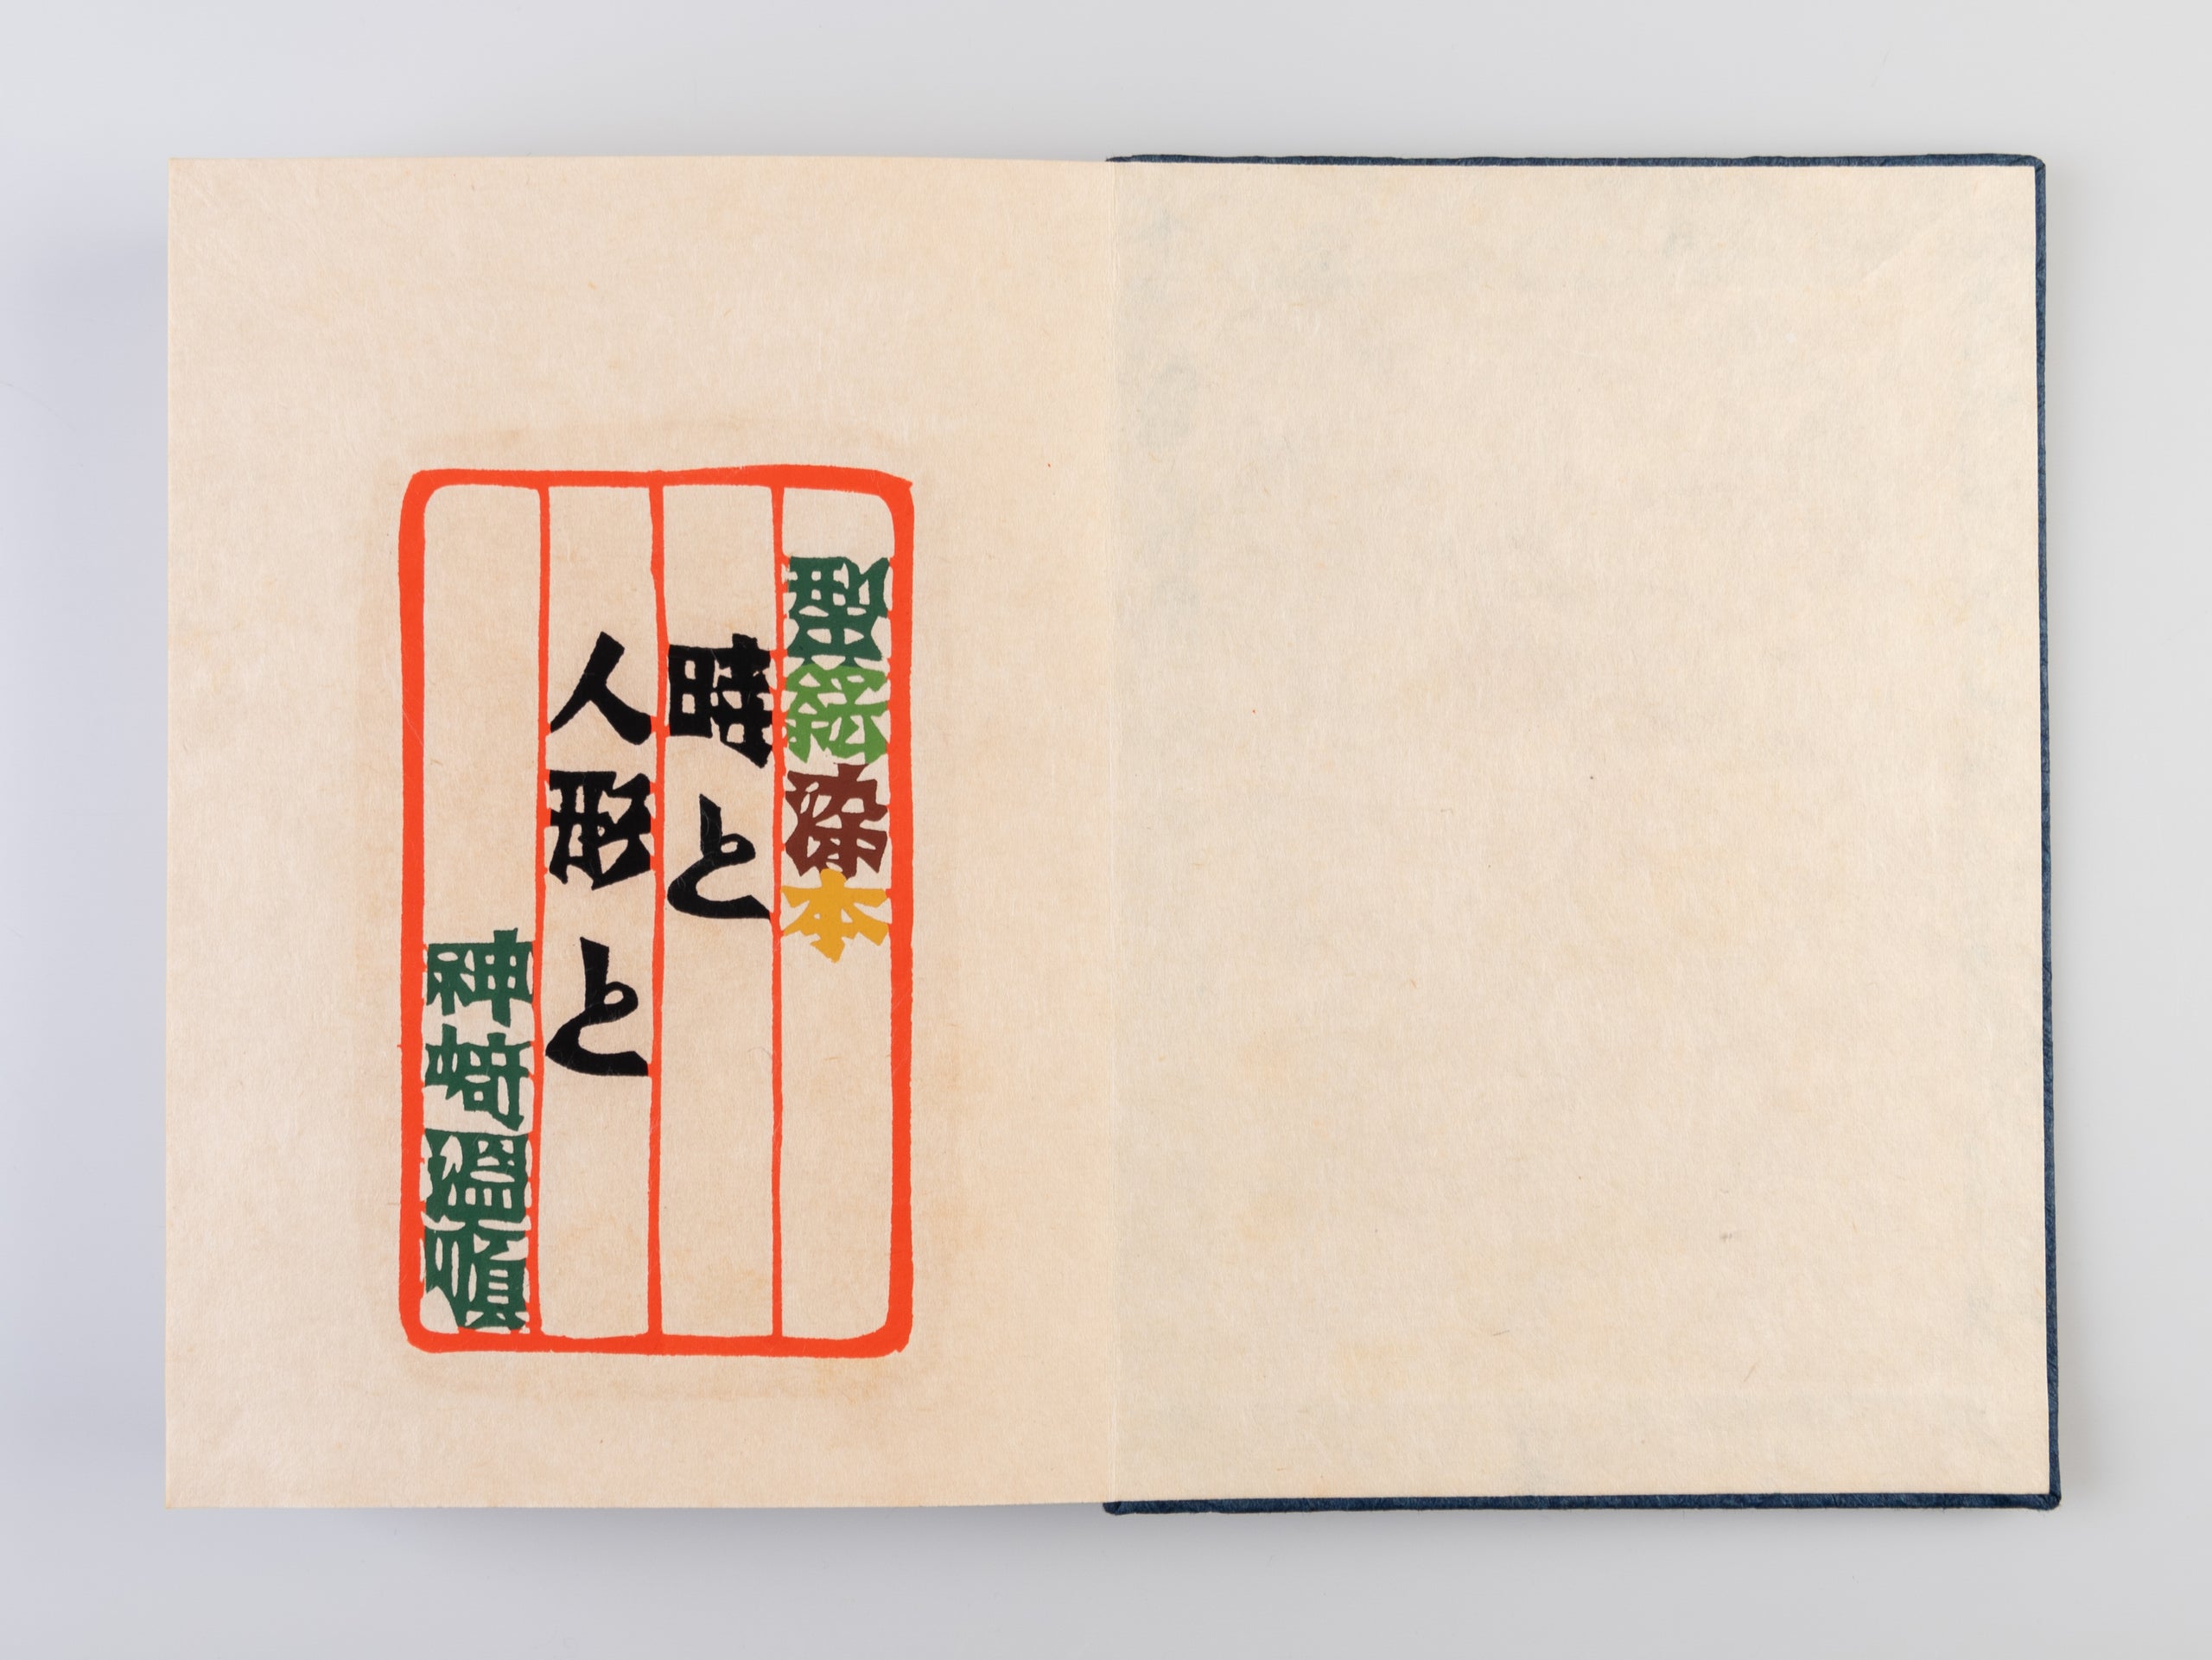 型絵染本
時と
人形と
神﨑温順